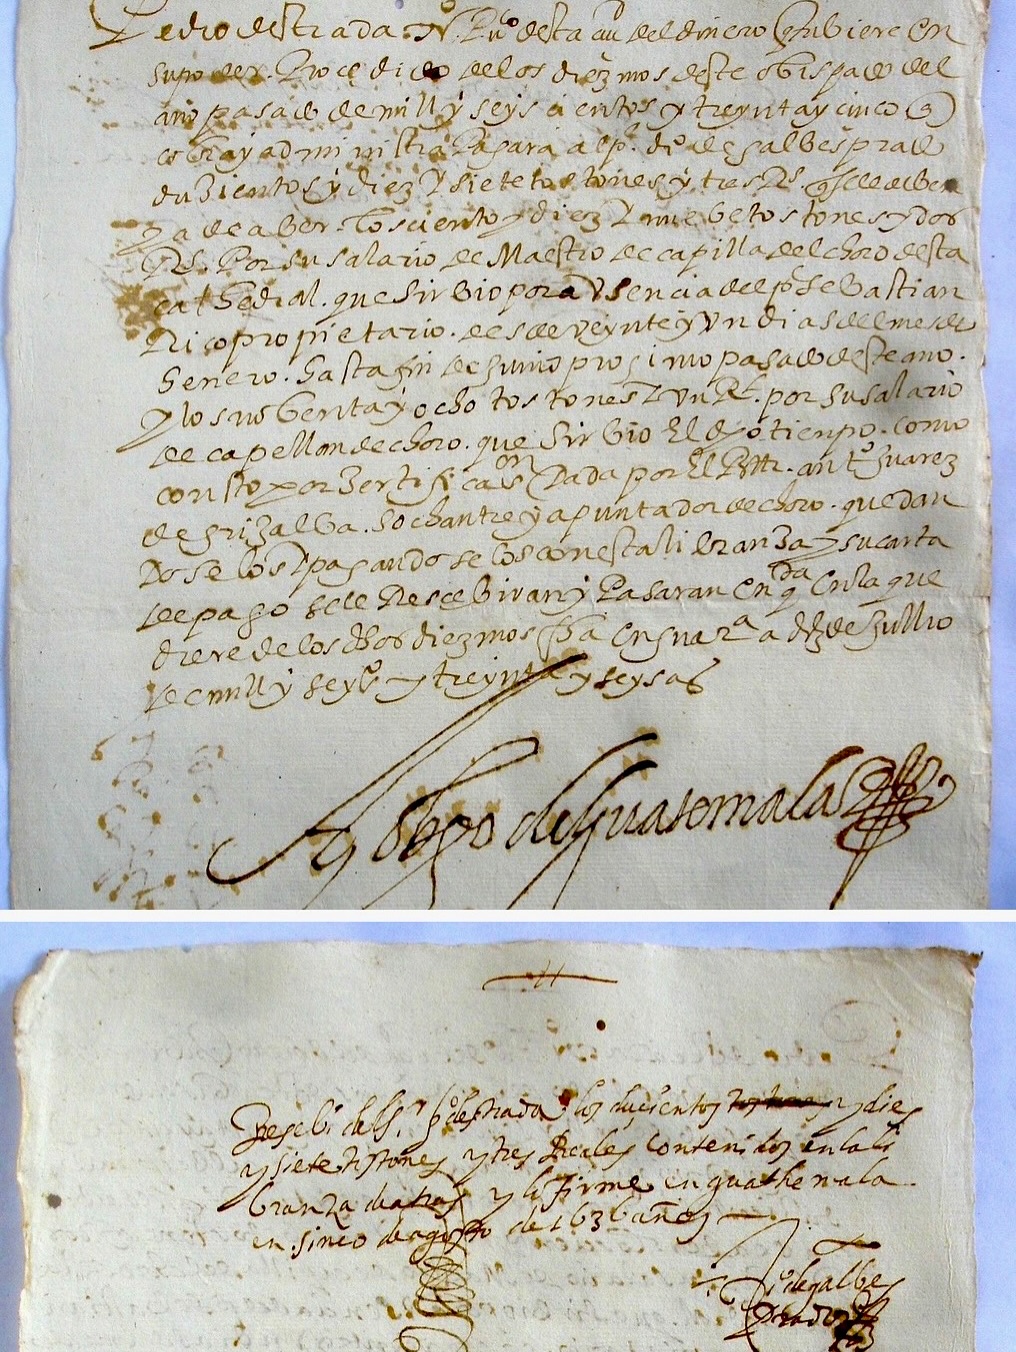 Pedro destrada. Nr. Puco desta ciu del dinero q ubiere en
su poder. Procedido de los diezmos deste obispado del
año pasado de mill y seys cientos y treynta y cinco q
cobra y administra Pagara al pe. dio de galbes prado
duzientos y diez y siete tostones y tres Rs. q se le deben
ya de aber. Los ciento y diez y nuebe tostones y dos
Rs. Por su salario de Maestro de capilla del choro desta
cathedral. que sirbio por avsencia del pe sebastian
Rico propietario. desde veynte y vn dias del mes de
henero. hasta fin de junio proximo pasado deste año.
y los nobenta y ocho tostones y vn Rl. por su salario
de capellan de choro. que sirbio El dho tienpo. como
consto por zertificaon Dada por El Pe. antto juarez
de grizalba. sochantre y apuntador de choro. que dan
dose los y pagandose los con esta libranza y su carta
de pago se le Rescebiran y Pasaran en qda En la que
diere de los dhos diezmos fha en guaxa a de jullio
de mill y seyso y treynta y seys as
El obpo de guatemala
Resebi del Sr. po destrada los dusientos tostones y dies
y siete tostones y tres Reales contenidos en la li
branza de atras y lo firme en guathemala
en sinco de agosto de 1636 años
dio de galbes
Prado